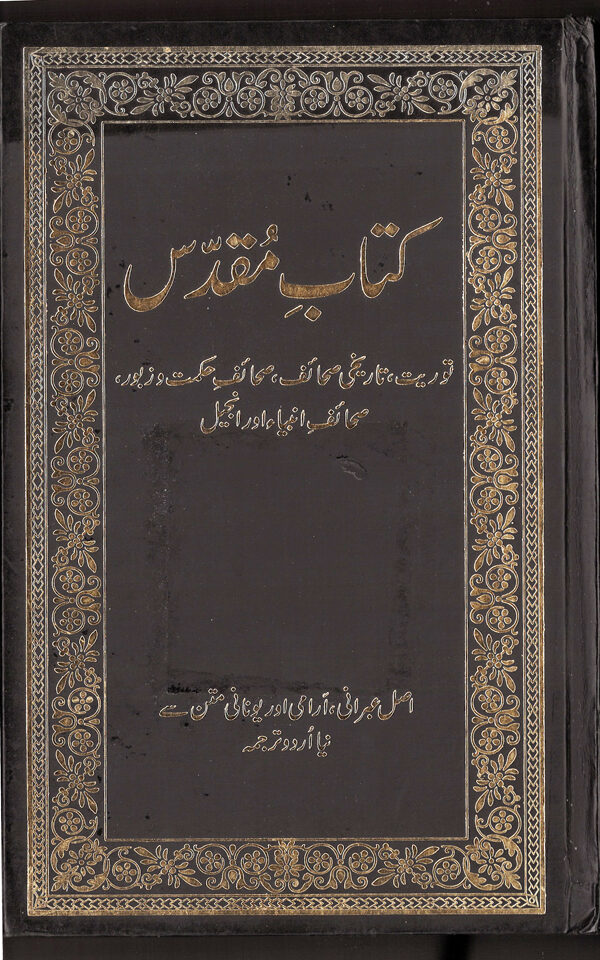 کتابِ مُقدّس
توریت، تاریخی صحائف، صحائفِ حکمت و زبور،
صحائفِ انبیاء اور انجیل
اصل عبرانی، آرامی اور یونانی متن سے
نیا اُردو ترجمہ